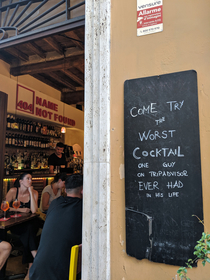 Allarme
404
NAME
NOT FOUND
COME TRY
THE
WORST
COCKTAIL
ONE GUY
ON TRIPADVISOR
EVER HAD
IN HIS LIFE